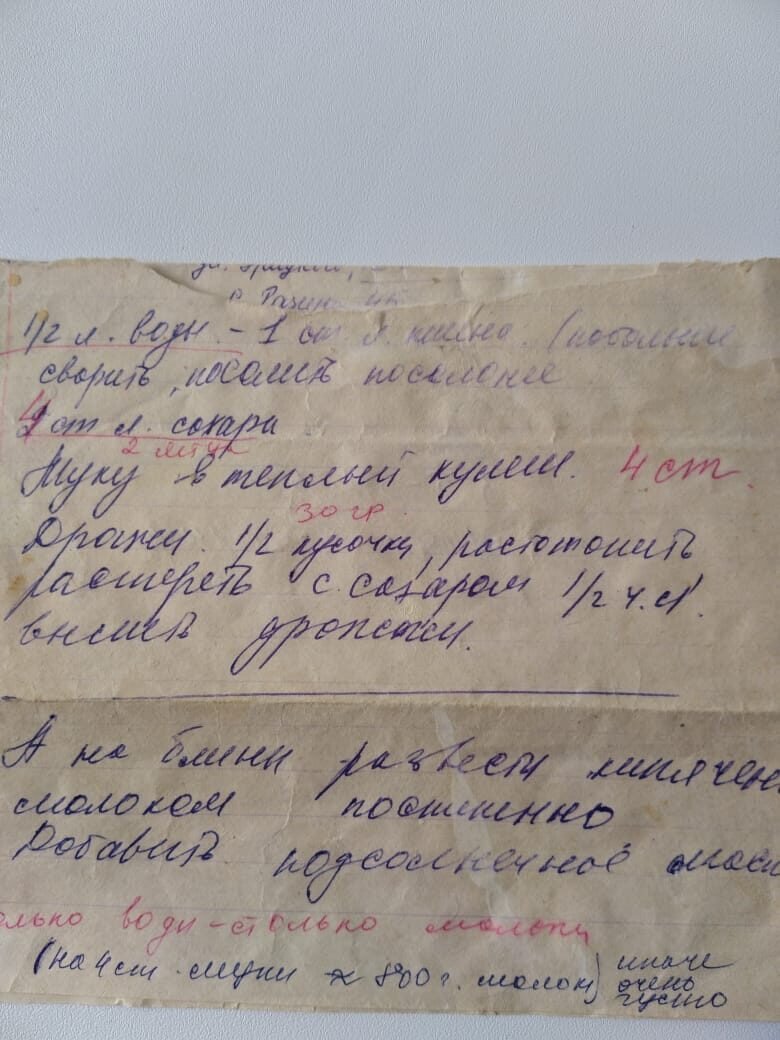 Разина
1/2 л. воды - 1 ст л. пшена. (побольше
сварить, посолить посолонее
4 ст л. сахара
2 штук
Муку в теплый кулеш. 4 ст.
30 гр
Дрожжи. 1/2 кусочка, растопить
растереть с сахаром 1/2 ч.л.
внести дрожжи.
А на блины развести кипячен
молоком постепенно
Добавить подсолнечное масл
олько воды-столько молока
(на 4 ст. муки ≈ 800 г. молок) иначе
очень
густо